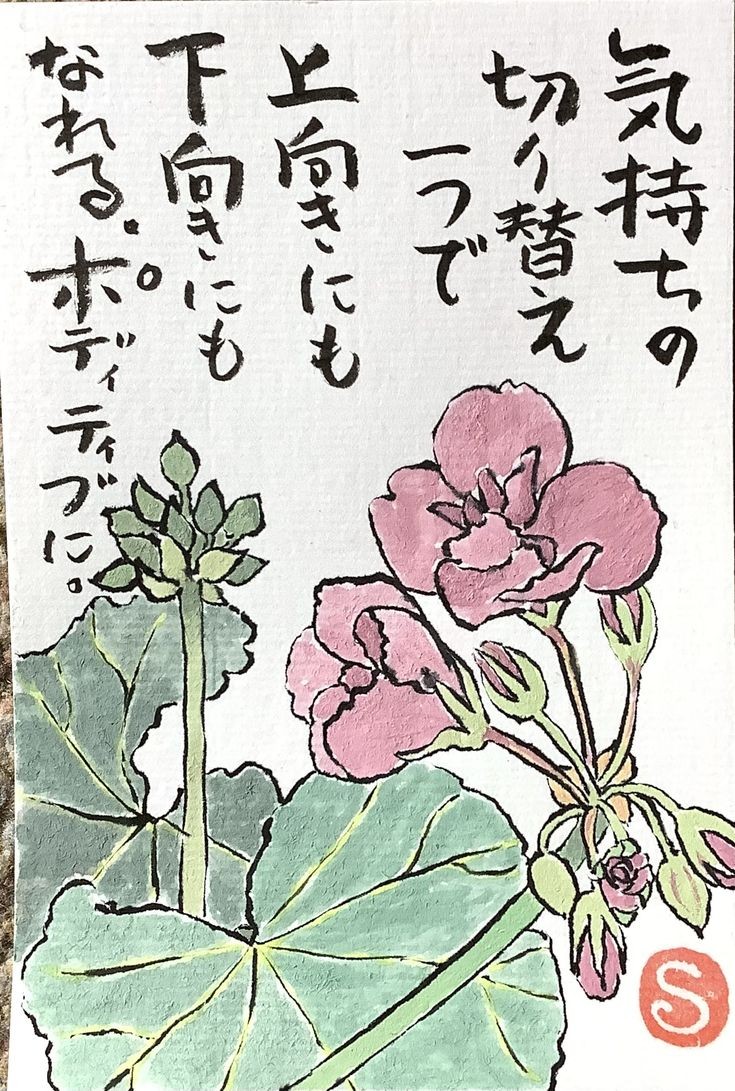 気持ちの
切り替え
一つで
上向きにも
下向きにも
なれる。ポディティブに。
S